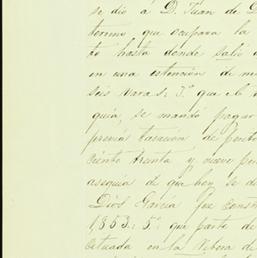 se dió á D. Juan de D
terreno que ocupara la
to hasta donde salió
en una estención de m
seis varas: 3.º que el
quia, se mandó pagar
previa tasación de perito
ciento treinta y nueve pe
asequia de que hoy se d
Dios Garcia fue const
1,853: 5.º que parte de
cituada en la Ribera de